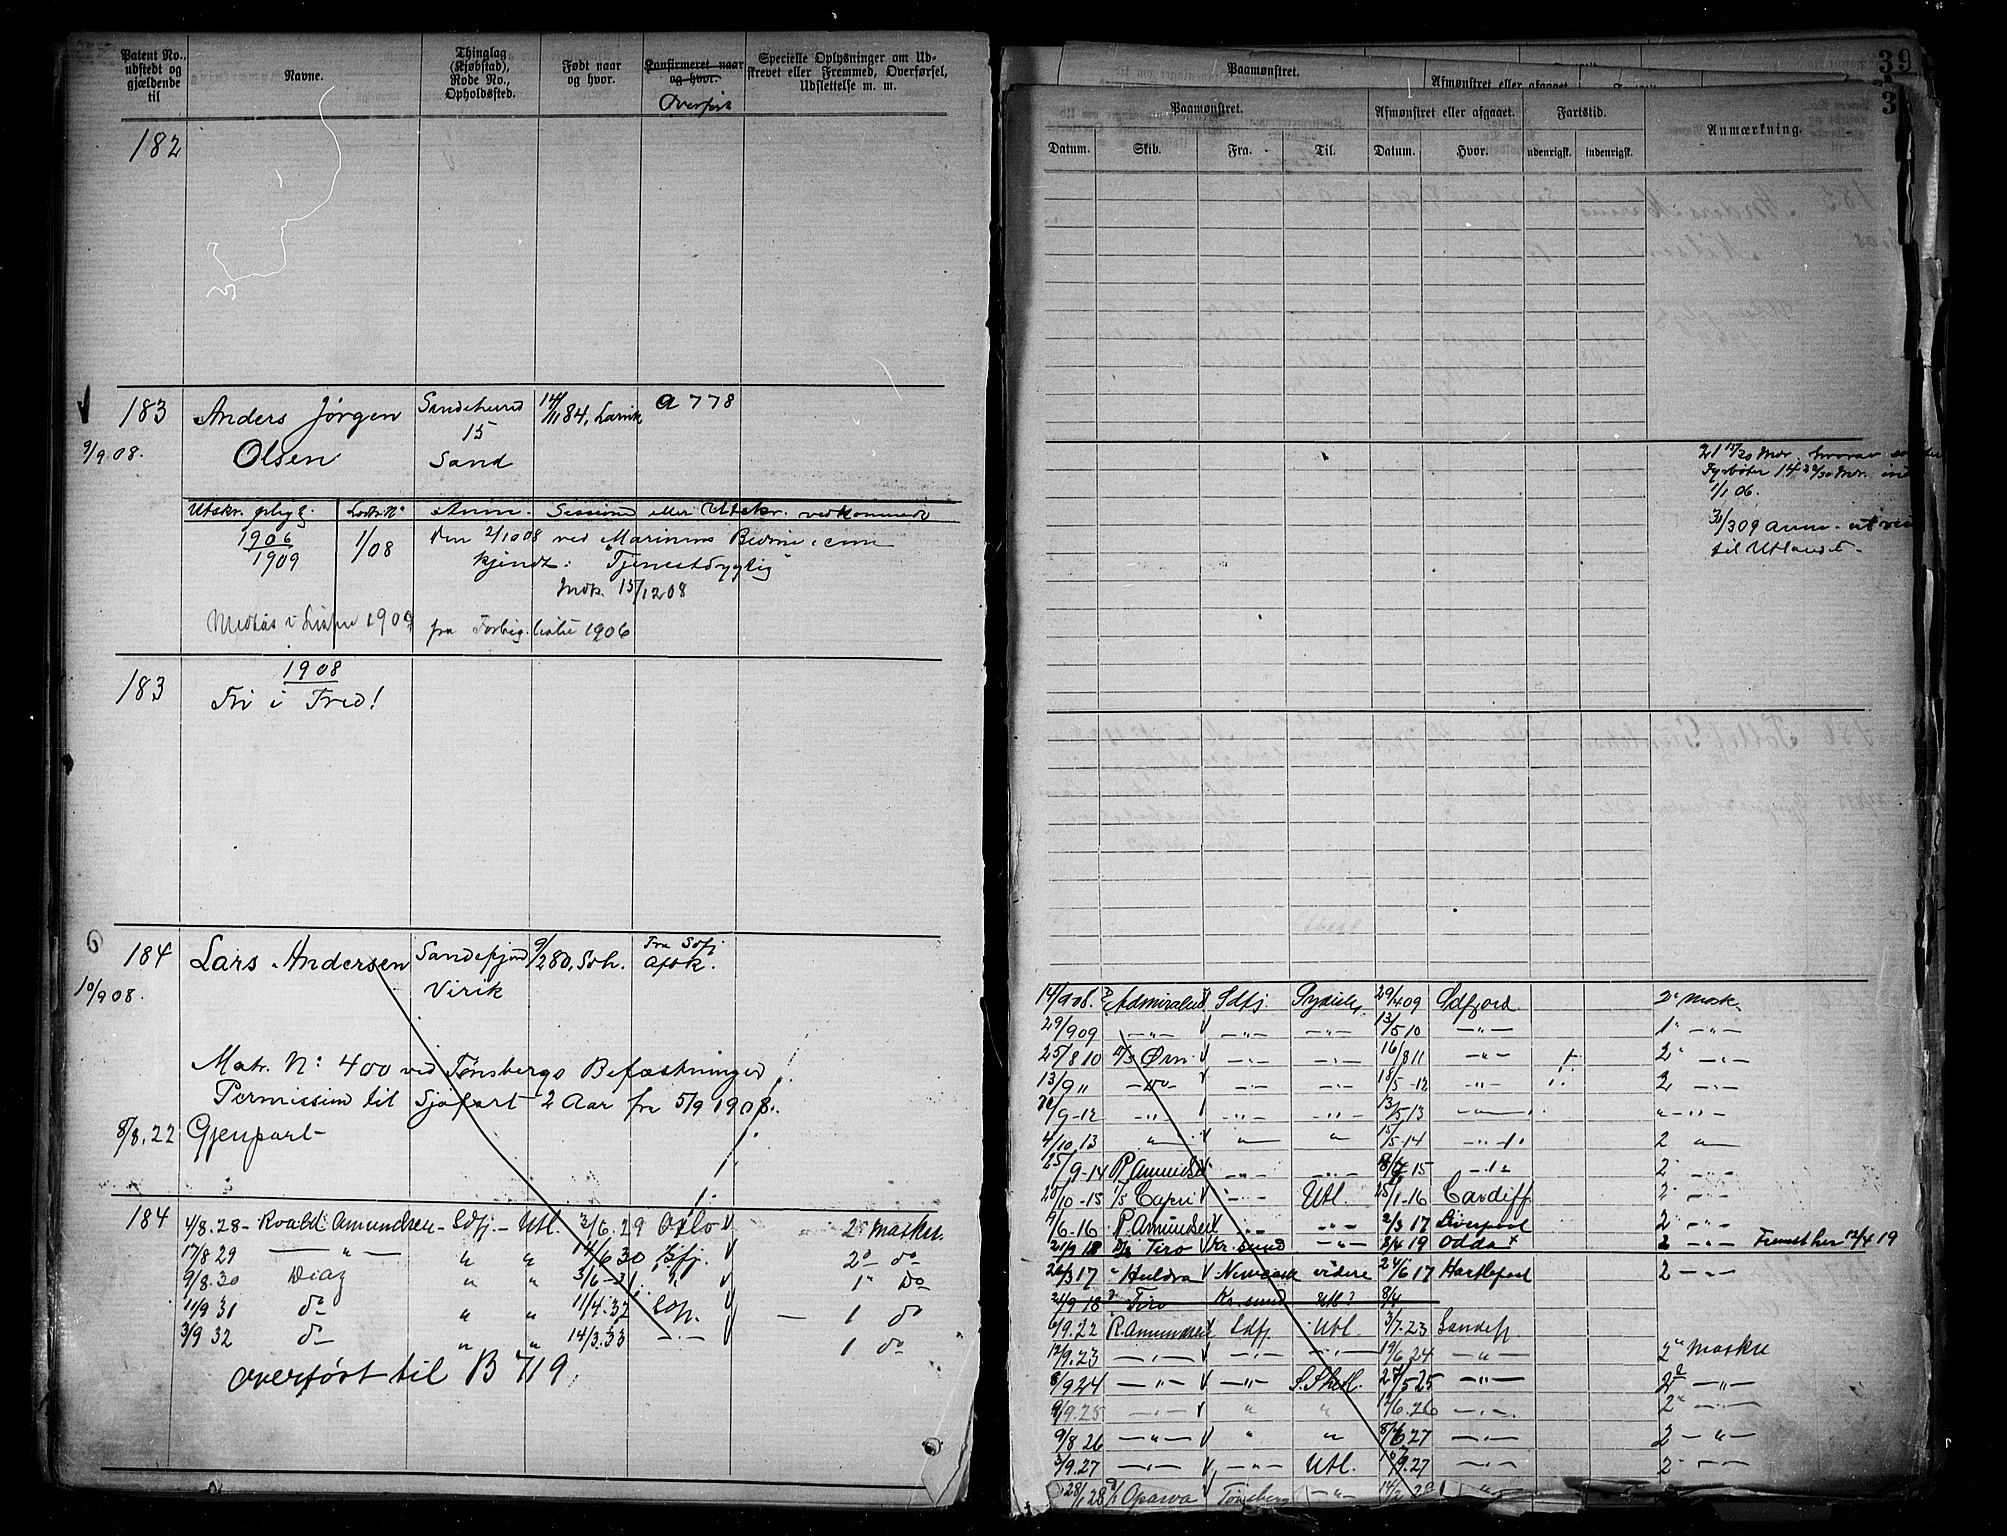 Patent No., udstedt og gjældende til
Navne.
Thinglag (Kjøbstad), Rode No., Opholdssted.
Født naar og hvor.
Konfirmeret naar og hvor.
Overført
Specielle Oplysninger om Udskrevet eller Fremmed, Overførsel, Udslettelse m. m.
182
183 Anders Jörgen Sandeherred 14/11 84, Larvik a 778
9/9 08. Olsen 15
Sand
Utskr. pligtg. Lodtr. No Anm. Session eller Utskr. vedkommende
1906 1/08 Den 2/10 08 ved Marinens
1909 kjendt: "Tjenestdygtig"
15/12 08
1909 fra 1906
183 1908
Fri i Fred!
184 Lars Andersen Sandefjord 9/2 80, Sdh. Fra Sdfj
10/9 08. Virik afsk.
Matr. No 400 ved Tønsbergs Befæstninger
Permission til Sjøfart 2 Aar fra 5/9 1908.
8/8.22 Gjenpart
184 4/8.28 - Roald Amundsen - Sdfj - Utl. 2/6.29 Oslo V 2 maskn.
17/8 29 — " — " " 14/6 30 V 2 do
9/8.30 Diaz " " 3/6-31 V 1 Do
11/9 31 do " " 11/4.32 Sdfj. V — 1 do
3/9 32 do " " 14/3.33 — " — V 1 do
overført til B 719
39
3
Paamønstret.
Afmønstret eller afgaaet.
Paamønstret. Afmønstret eller afgaaet. Fartstid. Anmærkning.
Datum. Skib. Fra. Til. Datum. Hvor. udenrigsk. indenrigsk.
21 15/30 Mdr. hvorav
Fyrbøter 14 Mdr.
1/1 06.
3/3 09 anm.
til Utlandet.
14/9 08. Admiralen V Sdfj Sydishv. 29/4 09 Sdfjord 2 Mask.
29/9 09 — " — V — " — — " — 13/5 10 — " — 1 — " —
25/8 10 Ørn V — " — — " — 16/8 11 — " — 2 — " —
13/9 11 — do — V — " — — " — 18/5-12 — " — 2 — " —
/9-12 — " — — " — — " — 13/5 13 — " — — " —
4/10 13 " V " " 15/5-14 — " — 2 "
25/9-14 R. Amundsen — " — — " — 15 — " — 2 — " —
20/10-15 Capri V — " — Utl. 25/1-16 Cardiff 2 — " —
9/6-16 R. Amundsen V — " — — " — 2/3 17 Liverpool 2 — " —
21/9 18 Tiro V Kr. sund — " — 2/4 19 Odda 2 — " — Fremst her 12/4 19
26/3 17 Huldra V Newcask videre 24/6 17 Hartlepool 2 — " —
21/9 18 Tiro Kr. sund Utl. 8/4
6/9.22 R. Amundsen V Sdfj Utl. 3/7.23 Sandefj.
12/9.23 — " — V — " — — " — 19/6 24 — " — 2 Maskn
8/9 24 — " — V — " — S. Shetl. 27/5 25 — " — 2 — " —
9/9.25 — " — V " " 12/6.26 — " — 2 — " —
9/8 26 — " — V " " 8/6 27 — " — 2 — " —
3/9.27 — " — V — " — Utl. .27 — " — 2 — " —
28/1 28 Orwa Tönsberg — " — 14/ 28